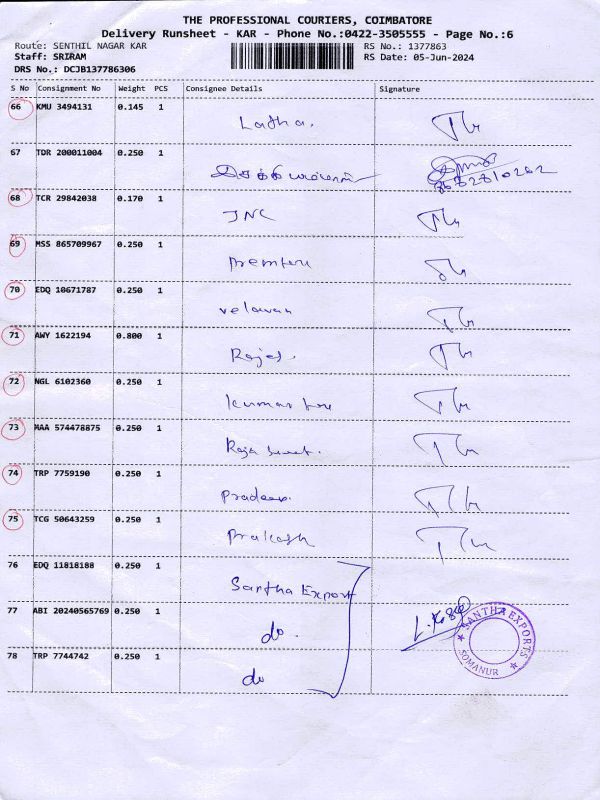 THE PROFESSIONAL COURIERS, COIMBATORE
Delivery Runsheet - KAR - Phone No.:0422-3505555 - Page No.:6
Route: SENTHIL NAGAR KAR RS No.: 1377863
Staff: SRIRAM RS Date: 05-Jun-2024
DRS No.: DCJB137786306
S No Consignment No Weight PCS Consignee Details Signature
66 KMU 3494131 0.145 1 Latha.
67 TDR 200011004 0.250 1
68 TCR 29842038 0.170 1 JNC
69 MSS 865709967 0.250 1
70 EDQ 10671787 0.250 1 velavan
71 AWY 1622194 0.800 1 Rajas.
72 NGL 6102360 0.250 1 kumar
73 MAA 574478875 0.250 1 Raja
74 TRP 7759190 0.250 1 Pradeep.
75 TCG 50643259 0.250 1 Prakash
76 EDQ 11818188 0.250 1 Santha Export
77 ABI 20240565769 0.250 1 do.
78 TRP 7744742 0.250 1 do
★ SANTHA EXPORTS ★ SOMANUR